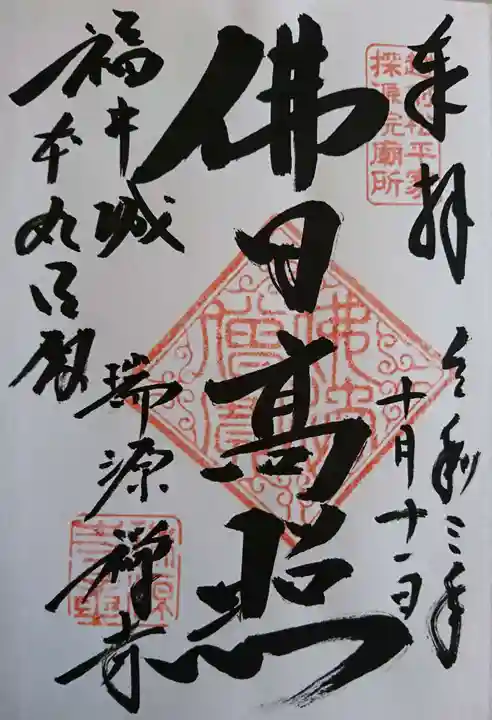 奉拝
令和三年
十月十一日
越前松平家
探源院廟所
佛日高照
佛法僧寶
福井城
本丸御殿
瑞源禅寺